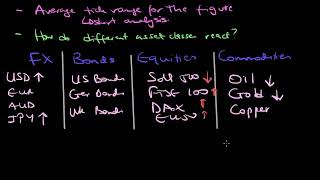 - Average tick range for the figure
- How do different asset classe react?
FX Bonds Equities Commodities
USD ↑ US Bonds S&P 500 ↓ Oil ↓
EUR Ger Bonds FTSE 100 ↑ Gold ↓
AUD UK Bonds DAX ↑ Copper
JPY ↑ EU50 ↑